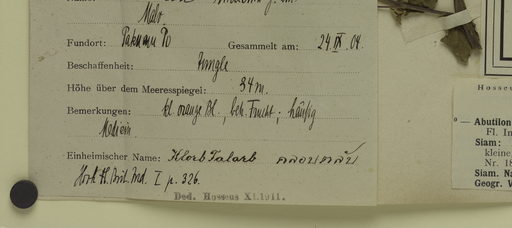 Malv.
Fundort: Paknam Po Gesammelt am: 24 IX. 04.
Beschaffenheit: Jungle
Höhe über dem Meeresspiegel: 34 m.
Bemerkungen: kl. orange Bl., beh. Frucht; häufig
Medicin.
Einheimischer Name: Klorb Talarb
Hook. Fl. Brit. Ind. I p. 326.
Ded. Hosseus XI.1911.
Hosseus
Abutilon
Fl. In
Siam:
kleine
Nr. 18
Siam. Na
Geogr. V